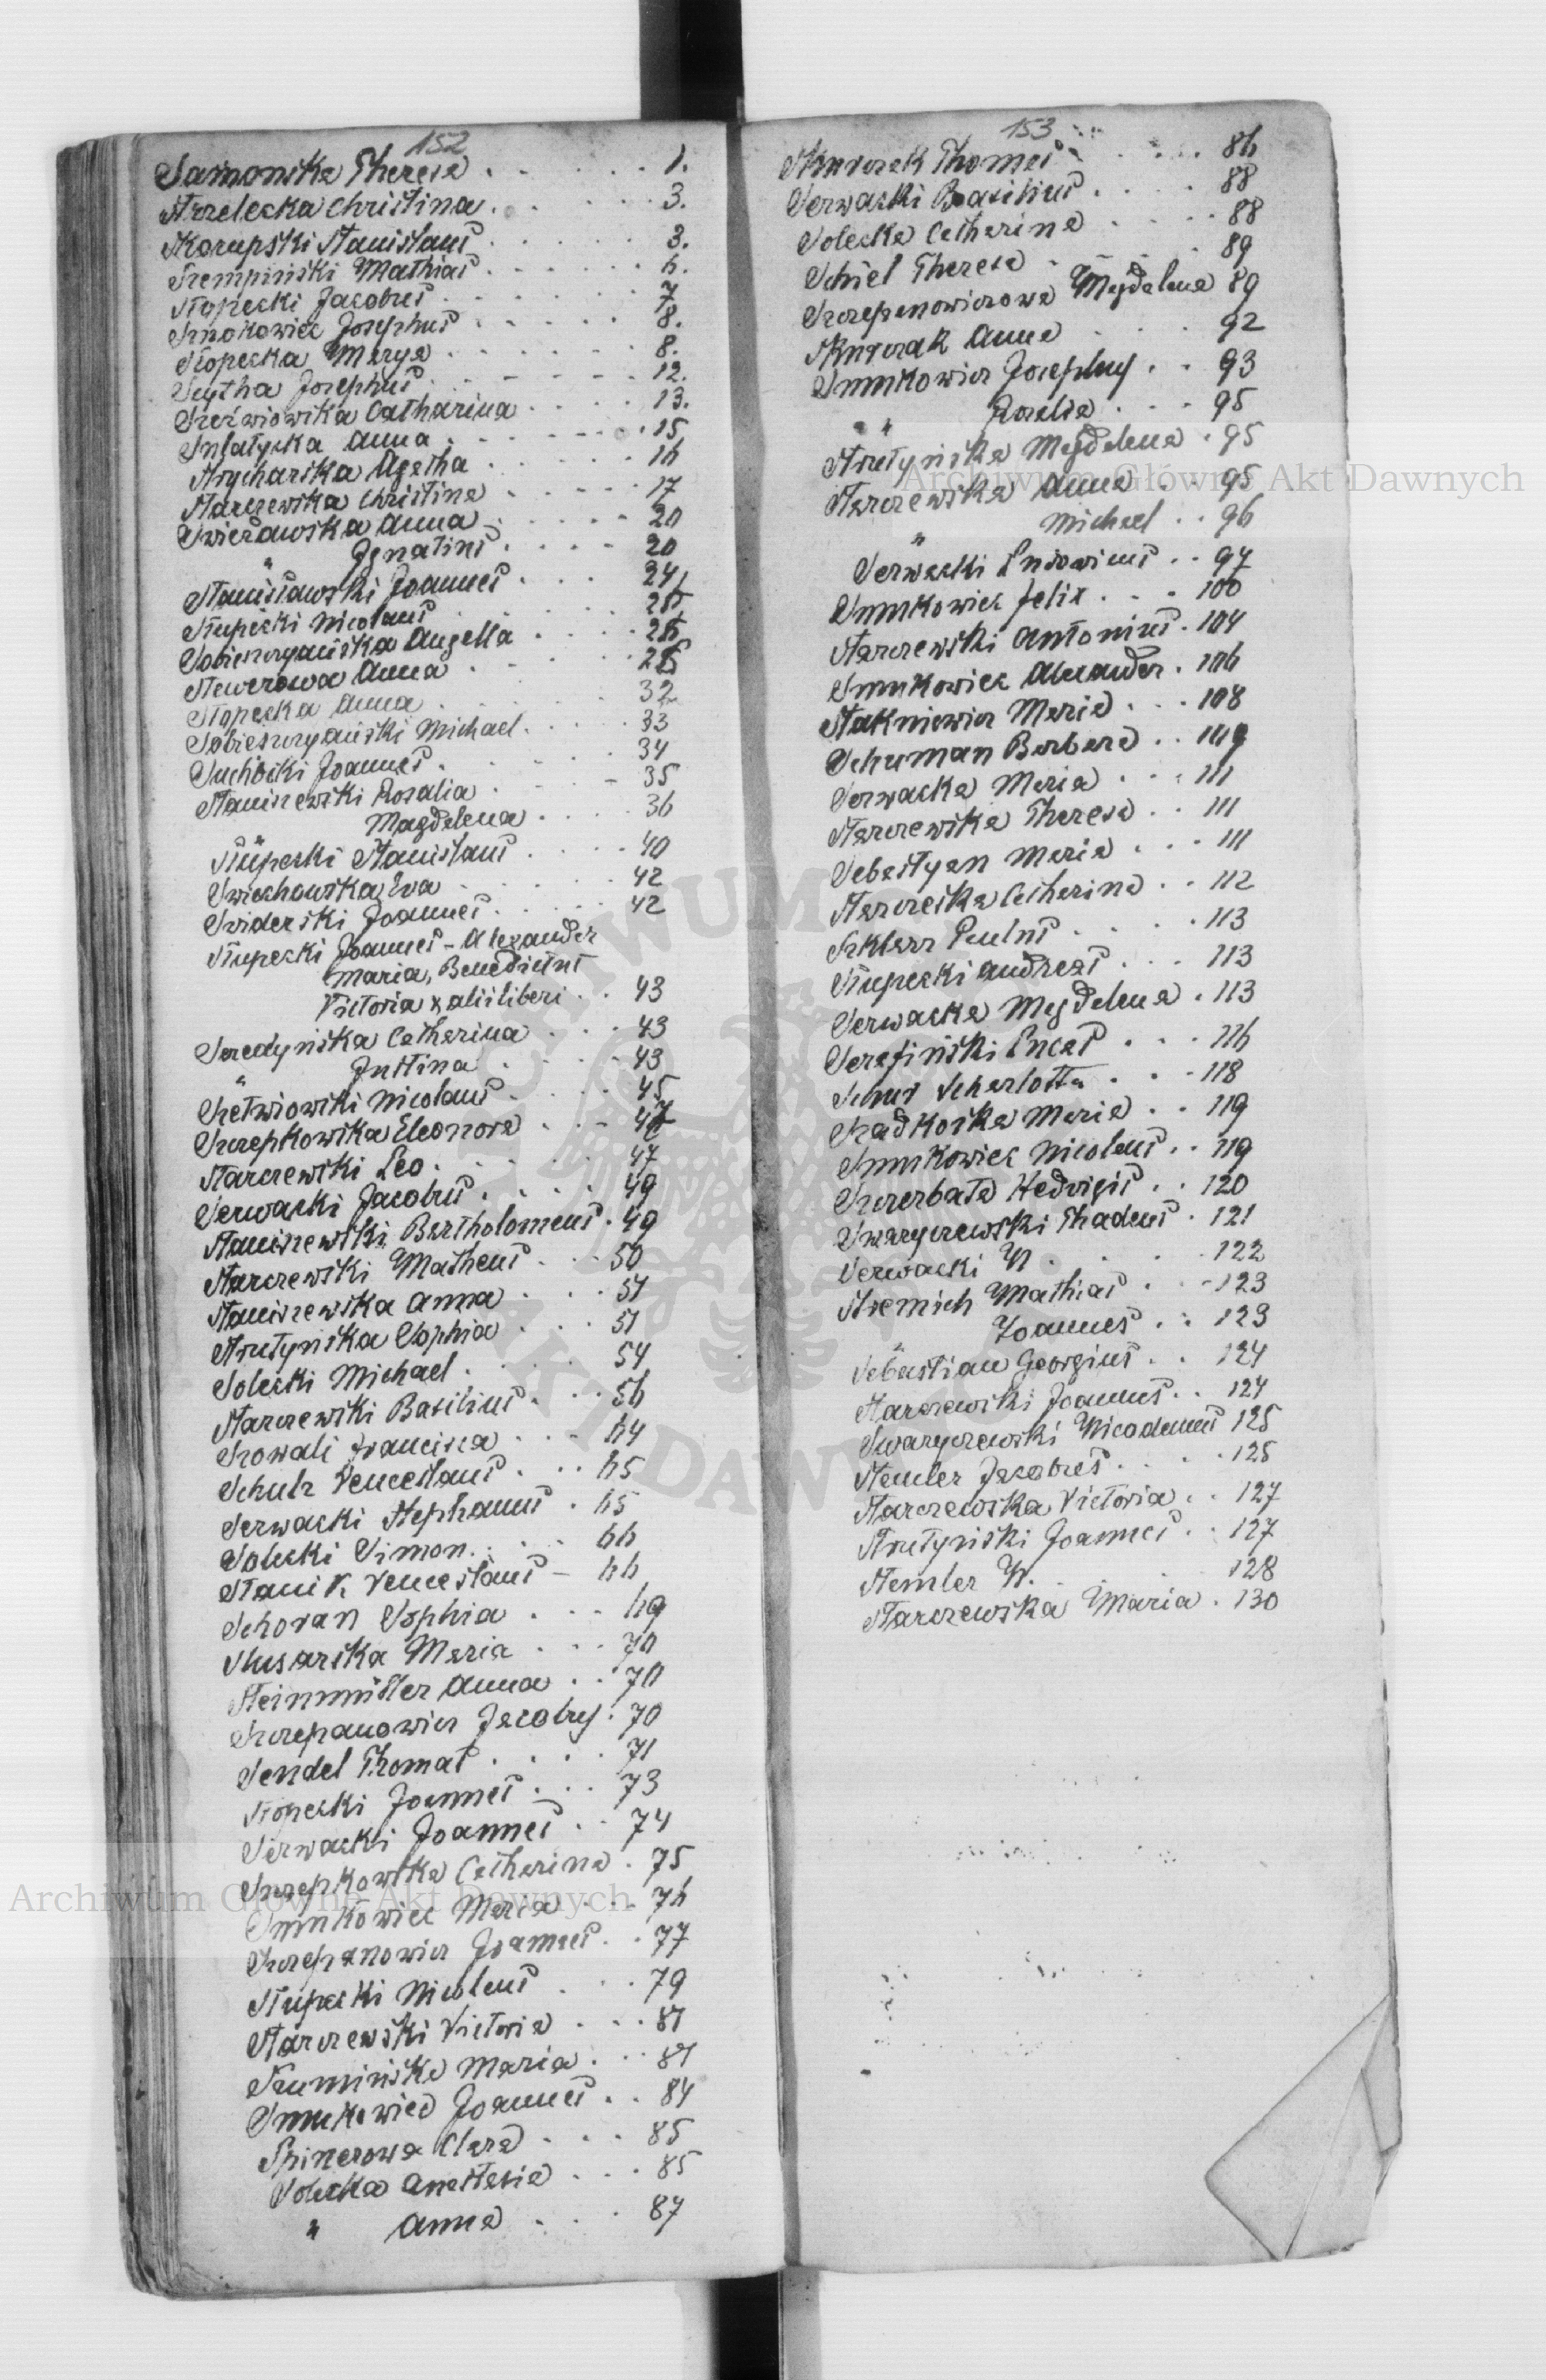 152
Samonska Theresa . . . . . 1.
Strzelecka Christina . . . . . 3.
Skorupski Stanislaus . . . . . 3.
Szempiński Mathias . . . . . 6.
Słopecki Jacobus . . . . . 7
Josephus . . . . . 8.
Słopecka Marya . . . . . 8.
Scytha Josephus . . . . . 12.
Catharina . . . . 13.
Anna . . . . . 15
Strycharska Agatha . . . . . 16
Starczewska Christina . . . . . 17
Anna . . . . . 20
" Ignatius . . . . 20
Stanisławski Joannes . . . 24
Słupecki Nicolaus . . . . 25
Sobieszczańska Angella . . . . 26
Anna . . . . 28
Słopecka Anna . . . . 32
Sobieszczański Michael . . . . 33
Suchocki Joannes . . . . 34
Staniszewski Rosalia . . . . 35
" Magdalena . . . . 36
Słupecki Stanislaus . . . . 40
Swiechowska Eva . . . . 42
Swiderski Joannes . . . . 42
Słupecki Joannes - Alexander
Maria, Benedictus
Victoria & alii liberi . . 43
Seredyńska Catharina . . . 43
" Justina . . . . 43
Nicolaus . . . . 45
Szczepkowska Eleonora . . . 47
Starczewski Leo . . . . 47
Serwacki Jacobus . . . . 49
Staniszewski Bartholomeus . 49
Starczewski Matheus . . . 50
Staniszewska Anna . . . 51
Strutyńska Sophia . . . 51
Solecki Michael . . . . 54
Starczewski Basilius . . . 56
Szowali Francisca . . . 64
Schulz Venceslaus . . . 65
Serwacki Stephanus . 65
Solecki Simon . . . 66
Stanik Venceslaus - 66
Schoran Sophia . . . 69
Slusarska Maria . . . 70
Steinmüller Anna . . 70
Szczepanowicz Jacobus . 70
Sendel Thomas . . . . 71
Słopecki Joannes . . . 73
Serwacki Joannes . . 74
Szczepkowska Catharina . 75
Smukowicz Maria . . . 76
Szczepanowicz Joannes . . 77
Słupecki Nicolaus . . . 79
Starczewski Victoria . . . 81
Szumińska Maria . . . 81
Smukowicz Joannes . . 84
Spinerowa Clara . . . 85
Solecka Anastasia . . . 85
" Anna . . . 87
153
Skurczak Thomas . . . . 86
Serwacki Basilius . . . . 88
Solecka Catharina . . . . 88
Schiel Theresa . . . . 89
Szczepanowiczowa Magdalena 89
Skurczak Anna . . . 92
Smukowicz Josephus . . 93
" " Rosalia . . . 95
Strutyńska Magdalena . 95
Starczewska Anna . . . 95
" Michael . . 96
Serwacki Ludovicus . . 97
Smukowicz Felix . . . 100
Starczewski Antonius . 104
Smukowicz Alexander . 106
Stakniewicz Maria . . . 108
Schuman Barbara . . 109
Serwacka Maria . . . 111
Starczewska Theresa . . 111
Sebastyan Maria . . . 111
Catharina . . 112
Szklarz Paulus . . . . 113
Słupecki Andreas . . . 113
Serwacka Magdalena . 113
Serafiński Lucas . . . 116
Scharlotta . . . 118
Szadkoska Maria . . 119
Smukowicz Nicolaus . . 119
Szczerbata Hedvigis . . 120
Swaryczewski Thadeus . 121
Serwacki N . . . . 122
Stremich Mathias . . 123
" Joannes . . 123
Sebastian Georgius . . 124
Starczewski Joannes . . 124
Swaryczewski Nicodemus 125
Stemler Jacobus . . . . 125
Starczewska Victoria . . 127
Strutyński Joannes . . 127
Stemler N. . . . 128
Starczewska Maria . 130
Archiwum Główne Akt Dawnych
Archiwum Główne Akt Dawnych
ARCHIWUM
AKT DAWNYCH